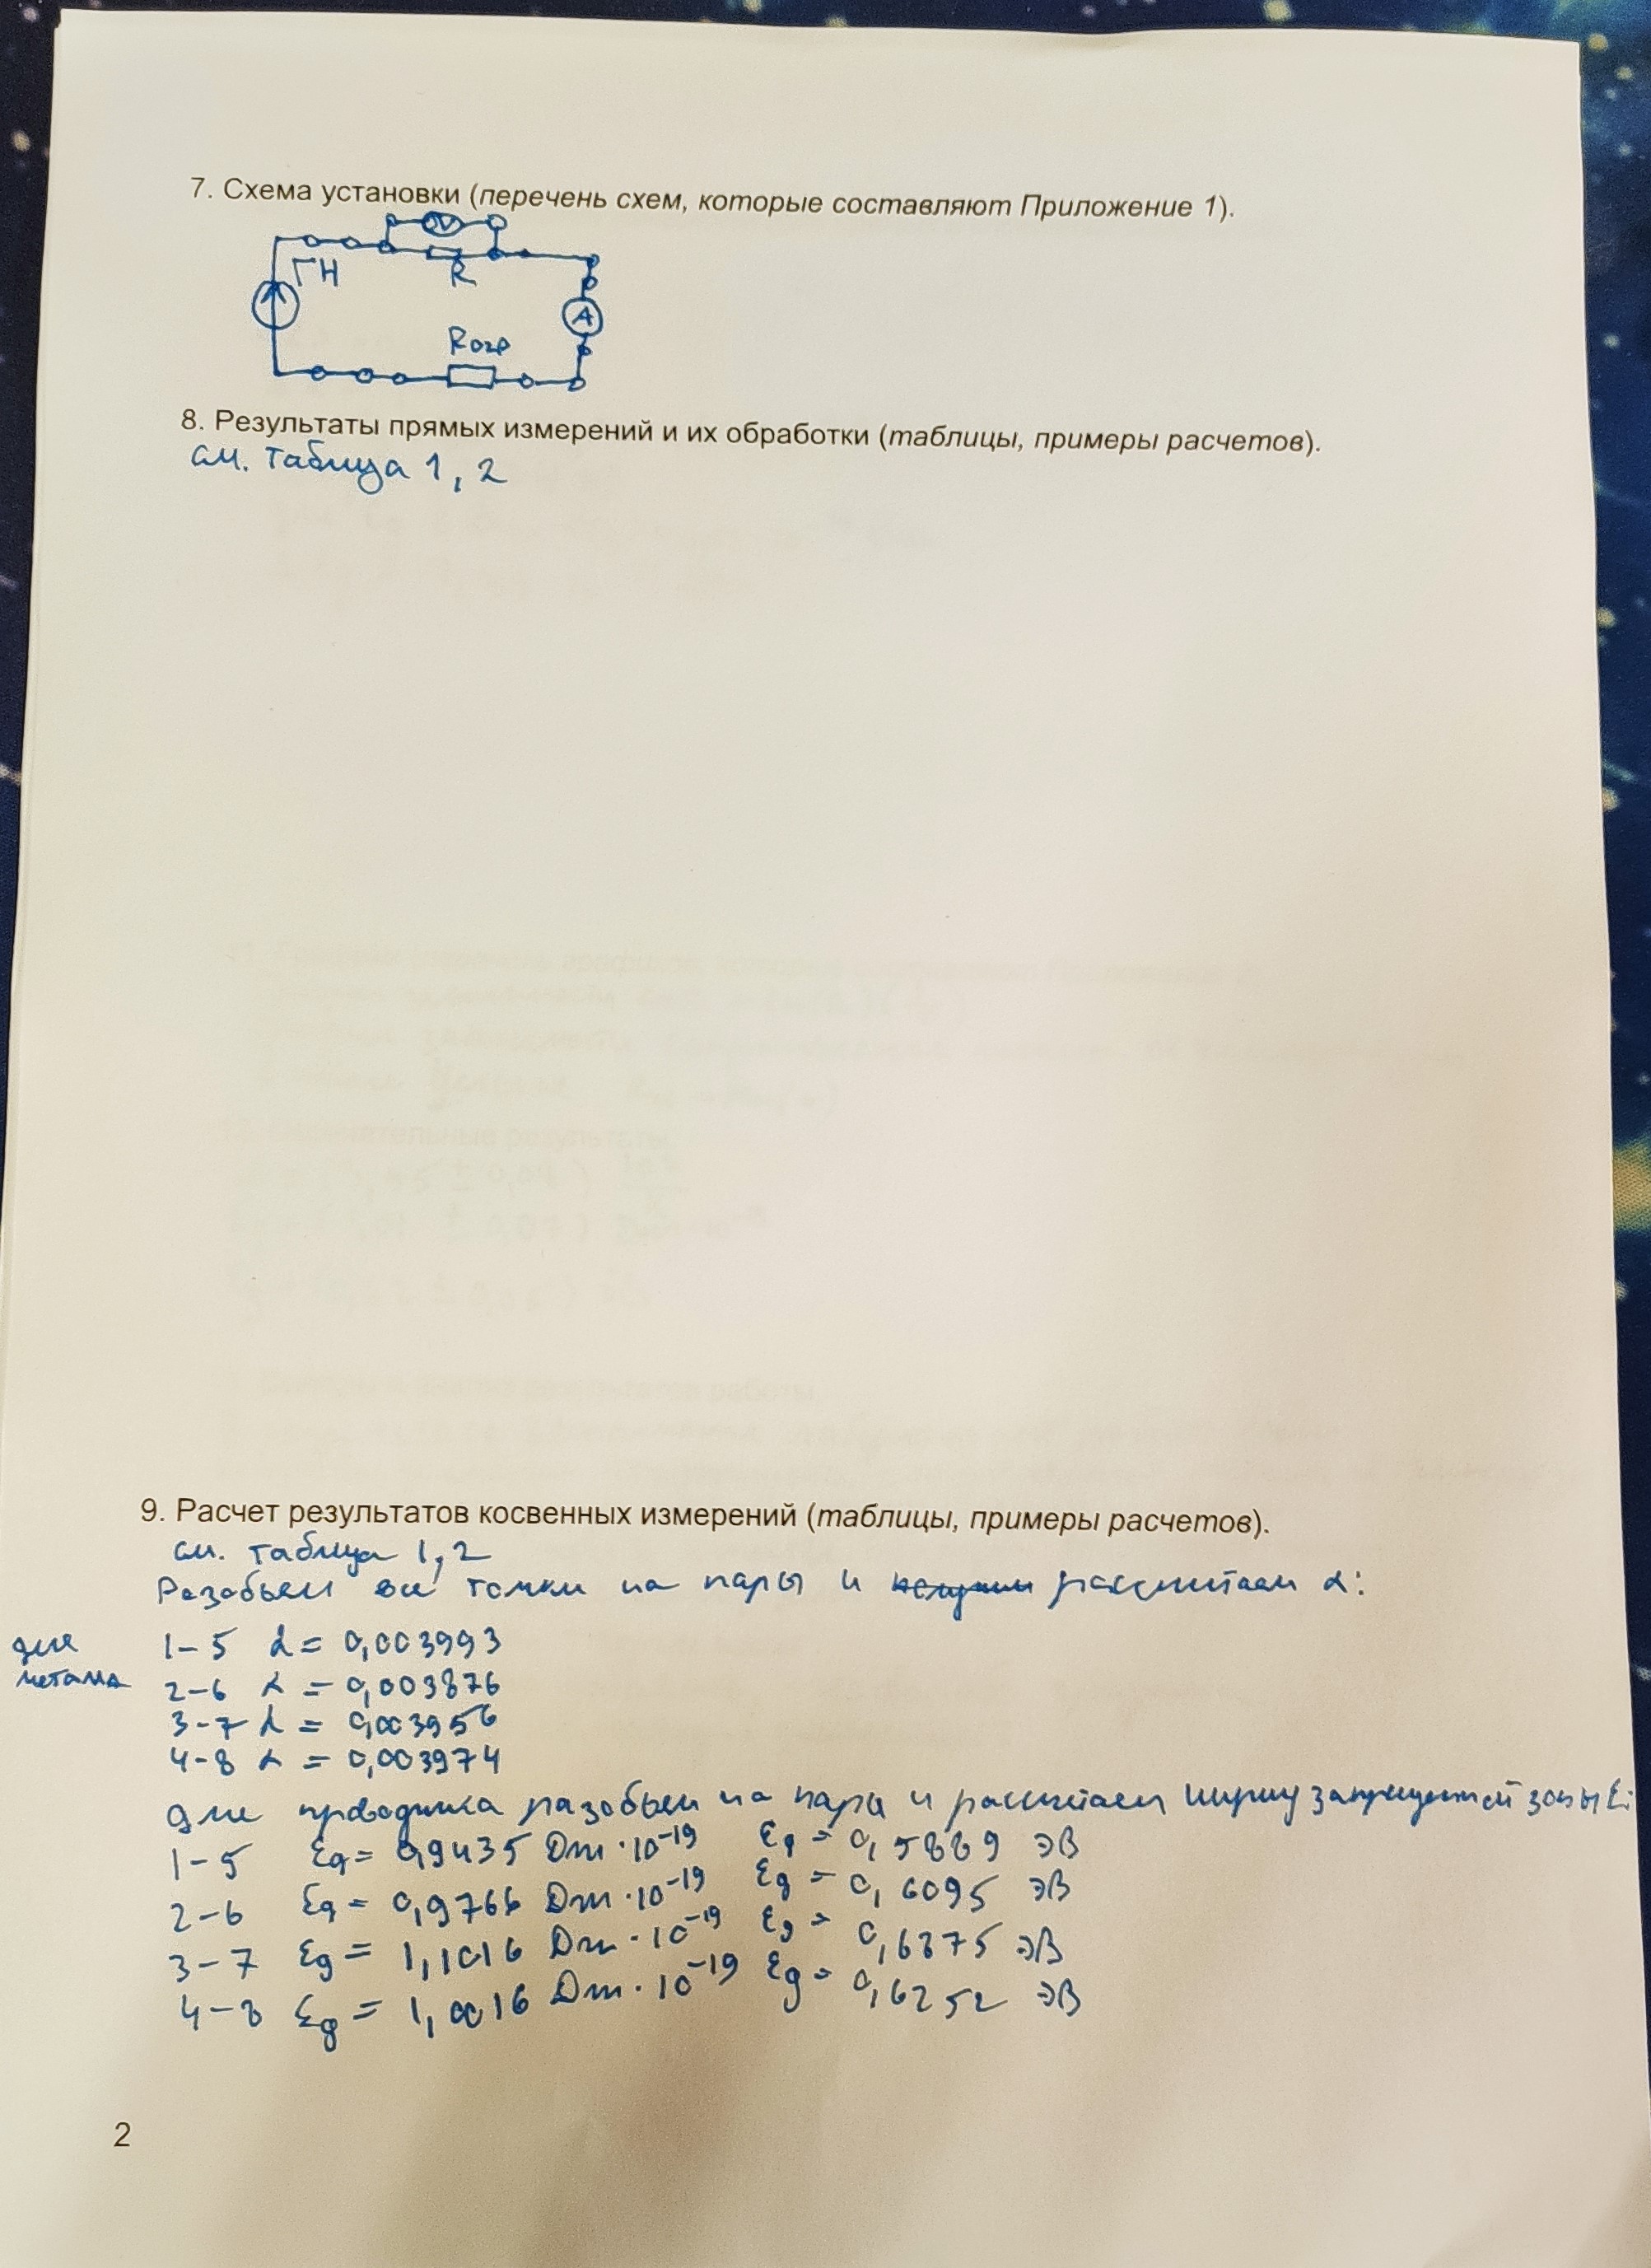 7. Схема установки (перечень схем, которые составляют Приложение 1).
V
ГН
R
A
Rогр
8. Результаты прямых измерений и их обработки (таблицы, примеры расчетов).
см. таблица 1, 2
9. Расчет результатов косвенных измерений (таблицы, примеры расчетов).
см. таблица 1, 2
Разобьем все точки на пары и рассчитаем α:
для металла
1-5 α = 0,003993
2-6 α = 0,003876
3-7 α = 0,003956
4-8 α = 0,003974
для проводника разобьем на пары и рассчитаем ширину запрещенной зоны
1-5 Eg = 0,9435 Дж·10⁻¹⁹ Eg = 0,5889 эВ
2-6 Eg = 0,9766 Дж·10⁻¹⁹ Eg = 0,6095 эВ
3-7 Eg = 1,1016 Дж·10⁻¹⁹ Eg = 0,6875 эВ
4-8 Eg = 1,0016 Дж·10⁻¹⁹ Eg = 0,6252 эВ
2